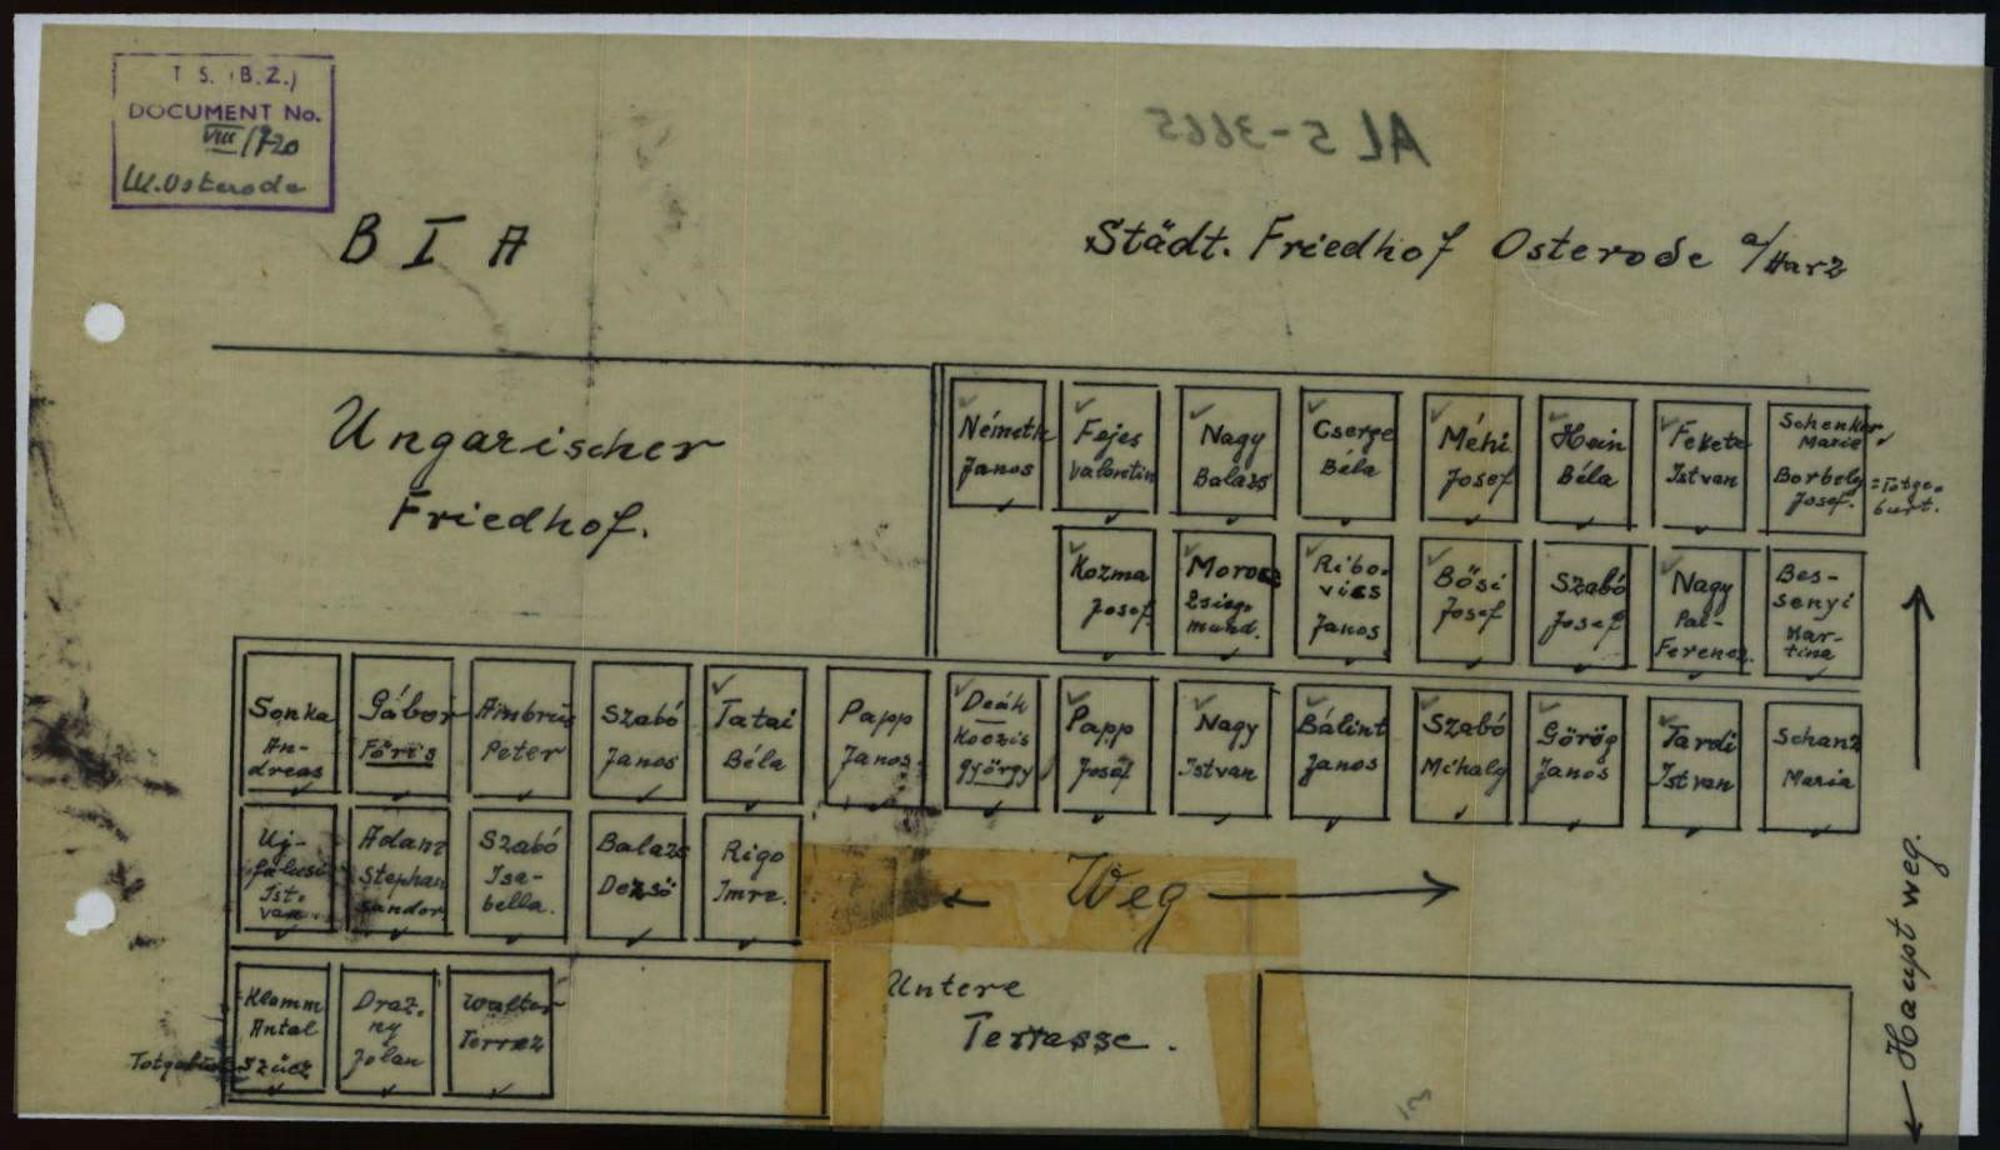 T S. (B.Z.)
DOCUMENT No.
VIII/720
W.Osterode
AL 5-3665
B I A
Städt. Friedhof Osterode a/Harz
Ungarischer
Friedhof.
Németh
Janos
Fejes
Valentin
Nagy
Balazs
Cserge
Béla
Méhi
Josef
Hein
Béla
Fekete
Istvan
Schenker
Marie
Borbely
Josef.
=Totge-
burt.
Kozma
Josef.
Morosz
Zsieg-
mund.
Ribo-
vics
Janos
Bősi
Josef
Szabó
Josef
Nagy
Pal-
Ferencz.
Bes-
senyi
Mar-
tina
Sonka
An-
dreas
Gábor
Fóris
Ambrus
Peter
Szabó
Janos
Tatai
Béla
Papp
Janos.
Deák
Koczis
György
Papp
Josef
Nagy
Istvan
Bálint
Janos
Szabó
Mihaly
Görög
Janos
Tardi
Istvan
Schanz
Maria
Uj-
falusi
Ist-
van.
Adam
Stephan
Sandor
Szabó
Isa-
bella.
Balazs
Dezsö
Rigo
Imre.
← Weg →
Klamm
Antal
Szücz
Draz-
ny
Jolan
Walter
Terrez
Untere
Terrasse.
← Hauptweg. →